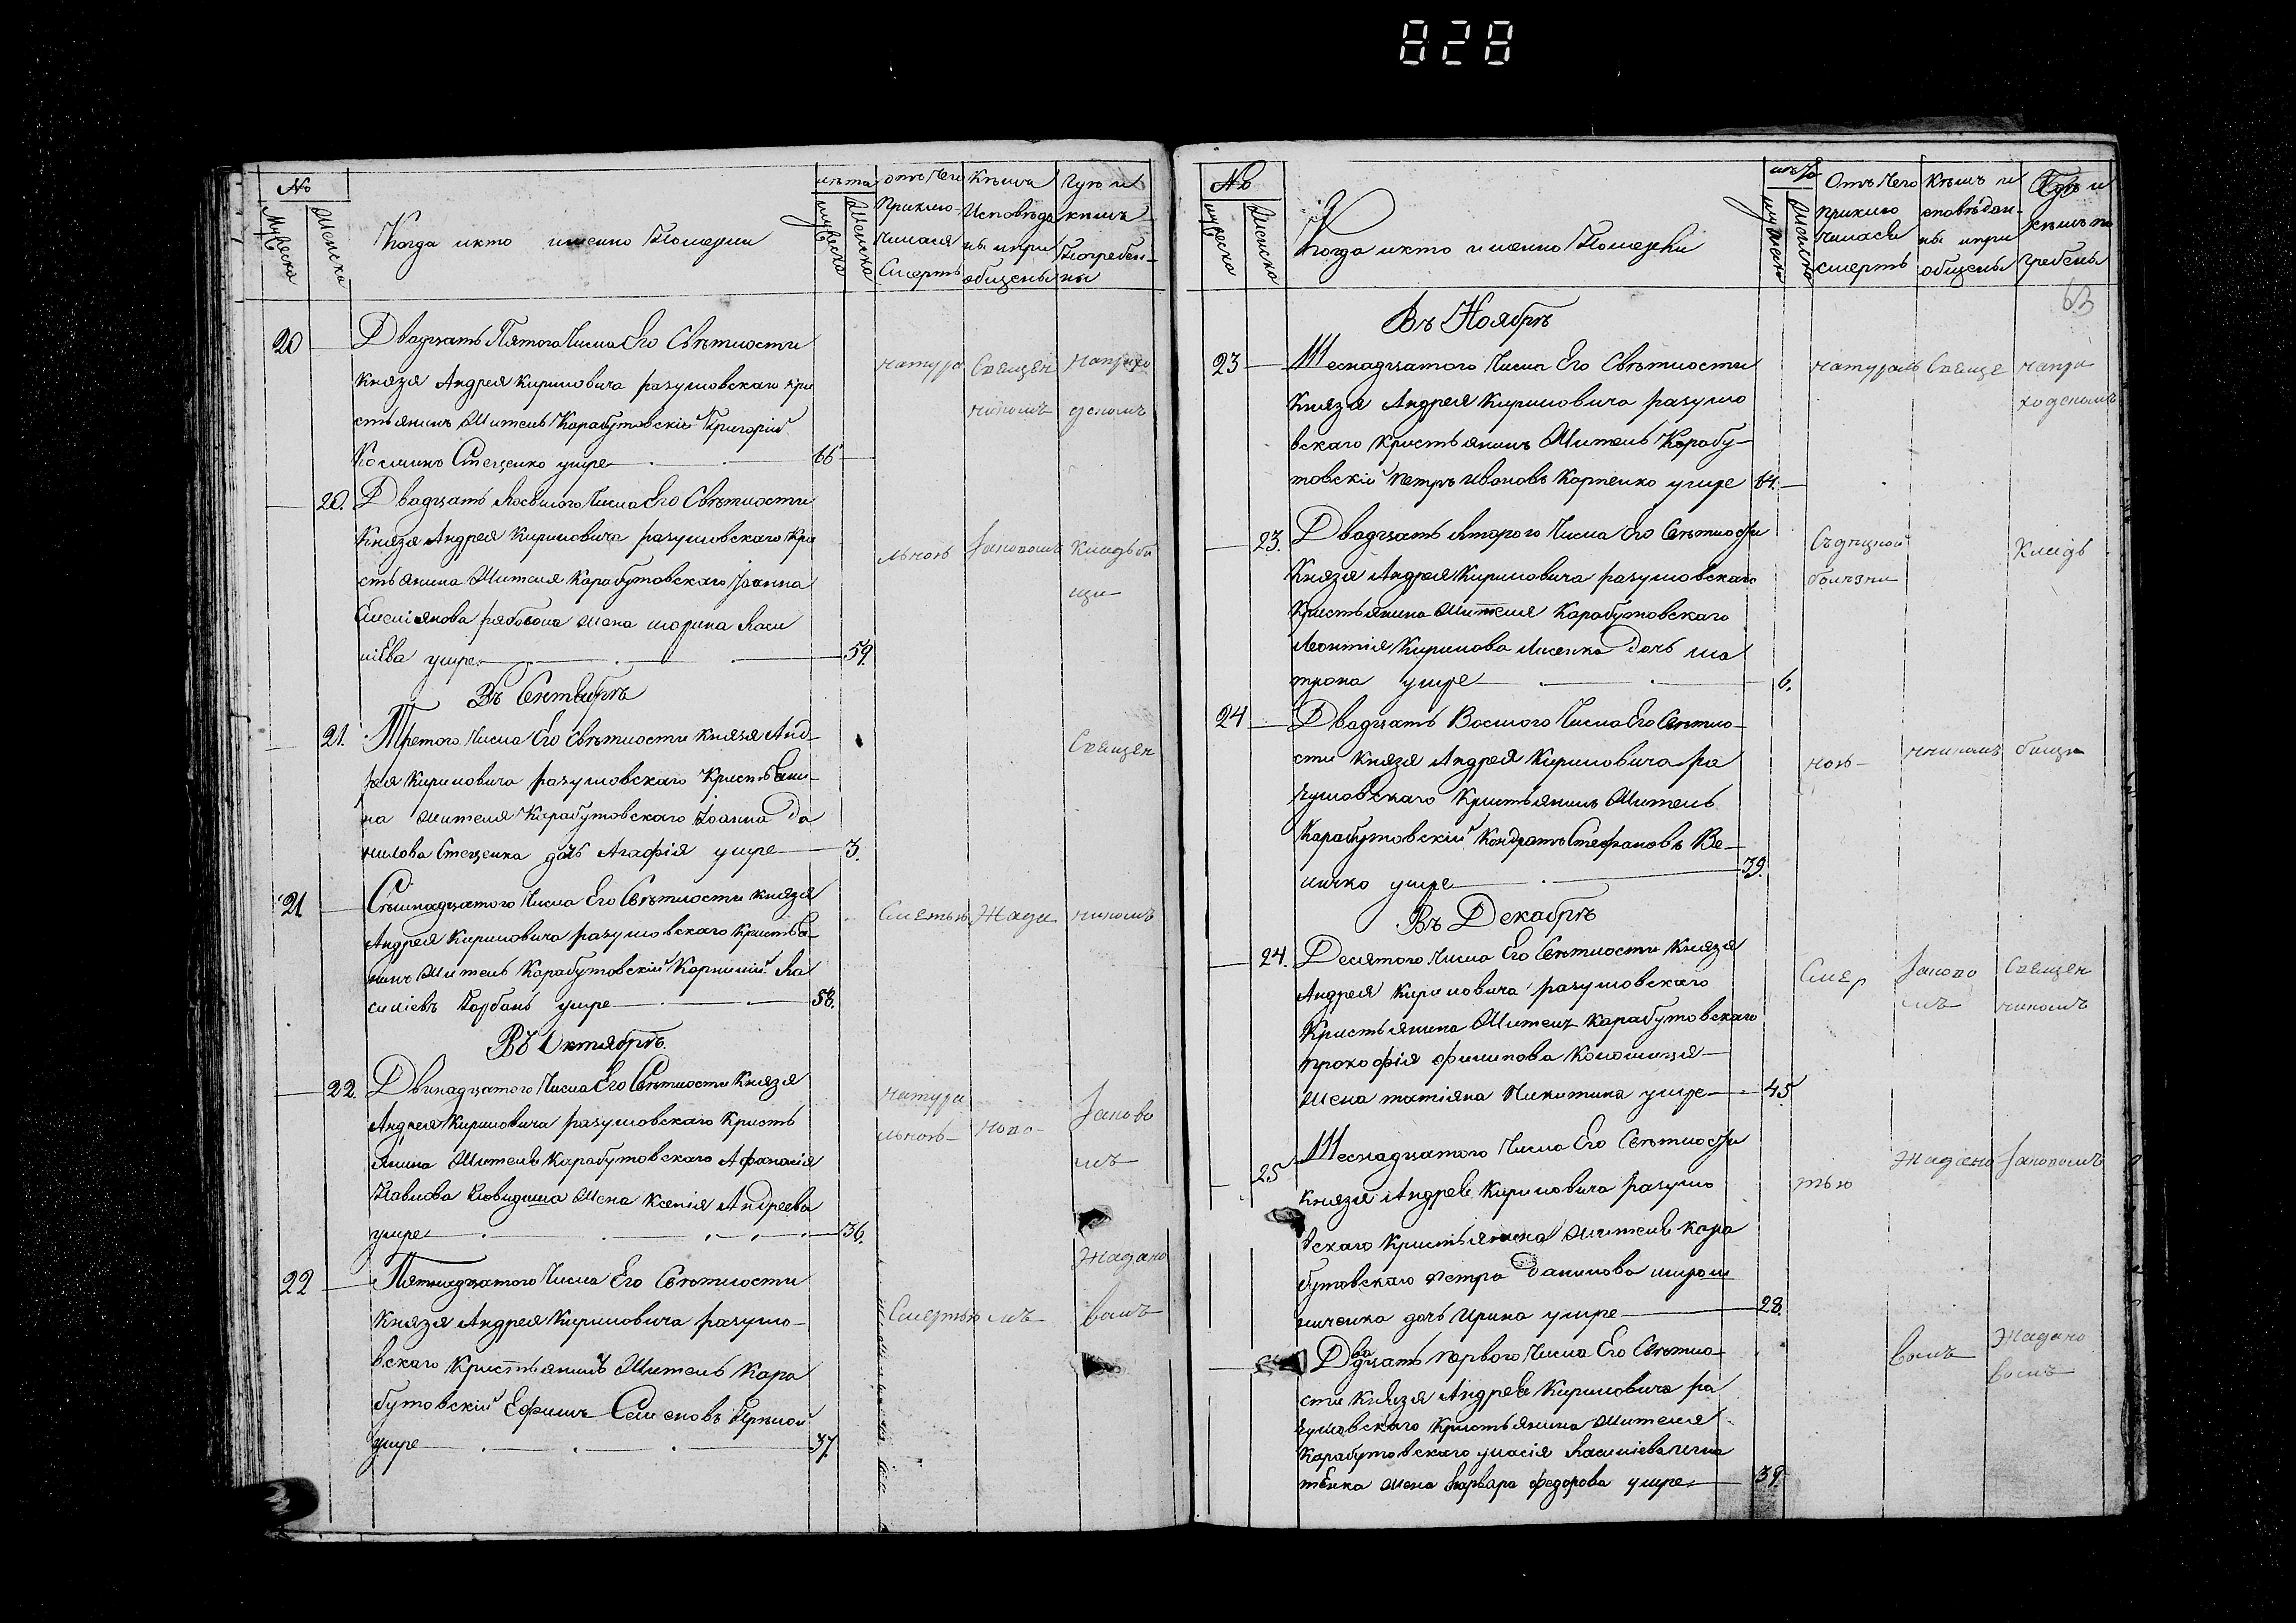 828
№
Мужеска
Женска
Когда и кто именно Померли
лѣта
мужеска
Женска
отъ Чего
Приклю-
чилася
Смерть
Кѣмъ
Исповѣда
ны и при
общены
Гдѣ и
кѣмъ
Погребен-
ны
20
Двадцать Пятого Числа Его Свѣтлости
Князя Андрея Кириловича разумовскаго кри
стьянинъ Житель Карабутовскій Григорій
Стеценко умре 66
20. Двадцать Восьмого Числа Его Свѣтлости
Князя Андрея Кириловича разумовскаго кри
стьянина Жителя Карабутовскаго Іоанна
Емеліянова жена марина Васи
лієва умре 59.
Въ Сентябрѣ
21. Третого Числа Его Свѣтлости Князя Анд-
рея Кириловича разумовскаго Кристьяни-
на жителя Карабутовскаго Іоанна Да
нилова Стеценка дочь Агафія умре 3.
21
Сѣмнадцатого Числа Его Свѣтлости князя
Андрея Кириловича разумовскаго кристья-
нинъ житель Карабутовскій Корнилій Ва
силіевъ умре 58.
Въ Октябрѣ
22. Двинадцатого Числа Его Свѣтлости Князя
Андрея Кириловича разумовскаго Кристь
янина Жителя Карабутовскаго Афанасія
Павлова жена Ксенія Андреева
умре 36.
22
Пятнадцатого Числа Его Свѣтлости
Князя Андрея Кириловича разумо-
вскаго Кристьянинъ Житель Кара
бутовскій Ефимъ Семеновъ
умре 37.
натура
льною
Смертью
натура
льною
Смертью
Священ
никомъ
Іаковомъ
Жада
ново
мъ
На прихо
дскомъ
кладьби
щи
Священ
никомъ
Іаково
мъ
Жадано
вымъ
№
мужеска
Женска
Когда и кто именно Померли
лѣта
мужеска
Женска
Отъ Чего
приклю
чилась
смерть
Кѣмъ и
сповѣдан-
ны и при
общены
Гдѣ и
кѣмъ по
гребены
63
Въ Ноябрѣ
23
Шеснадцатого Числа Его Свѣтлости
Князя Андрея Кириловича разумо
вскаго кристьянинъ Житель Карабу-
товскій Петръ Ивановъ Карпенко умре 64.
23. Двадцать Второго Числа Его Свѣтлости
Князя Андрея Кириловича разумовскаго
Кристьянина жителя Карабутовскаго
Леонтія Кирилова Лисенка дочь ма
трона умре 6.
24
Двадцать Восмого Числа Его Свѣтло-
сти Князя Андрея Кириловича ра
зумовскаго Кристьянинъ Житель
Карабутовскій Кондратъ Стефановъ Ве-
личко умре 39.
Въ Декабрѣ
24. Десятого Числа Его Свѣтлости Князя
Андрея Кириловича разумовскаго
Кристьянина Жителя карабутовскаго
прокофія филипова Коломийця
жена татіяна Никитина умре 45
25
Шеснадцатого Числа Его Свѣтлости
Князя Андрея Кириловича разумо
вскаго кристьянина жителя кара
бутовскаго петра Данилова
дочь Ирина умре 28.
Двадцать Первого Числа Его Свѣтло-
сти Князя Андрея Кириловича ра
зумовскаго кристьянина жителя
Карабутовскаго Василіева Игна
тенка жена Варвара федорова умре 39.
натураль
Съ
болѣзни
ною
Смер
тью
Свяще
нникомъ
Іаково
мъ
Жадано
вымъ
на при
ходскомъ
Кладь
бищи
Священ
никомъ
Іаковомъ
Жадано
вымъ